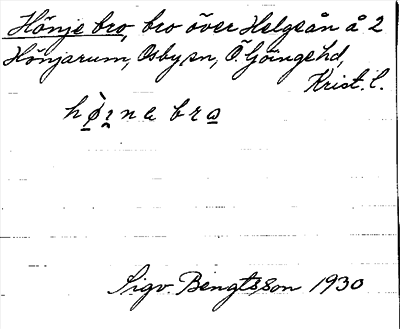 Hönje bro, bro över Helgeån å 2
Hönjarum, Osby sn, Ö. Göinge hd,
Krist. l.
Sigv. Bengtsson 1930